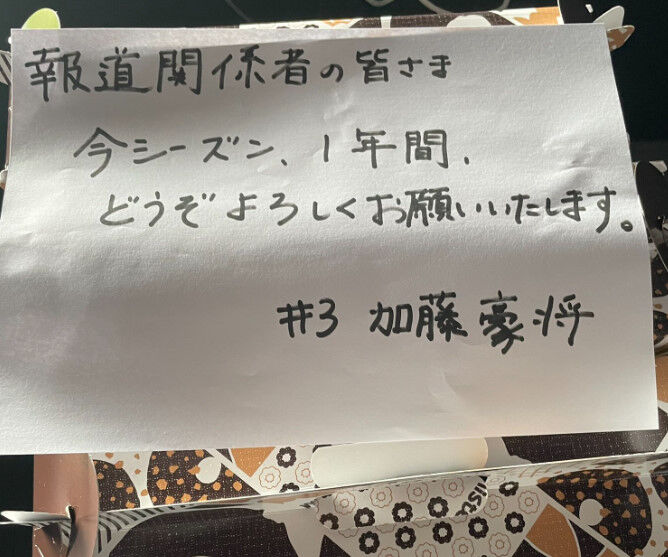 報道関係者の皆さま
今シーズン、1年間、
どうぞよろしくお願いいたします。
#3 加藤豪将